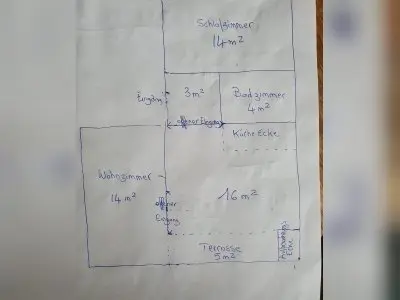 Schlafzimmer
14 m²
3 m²
Badzimmer
4 m²
offener Eingang
Küche Ecke
Wohnzimmer
14 m²
16 m²
offener
Eingang
Terrasse
5 m²
Ecke